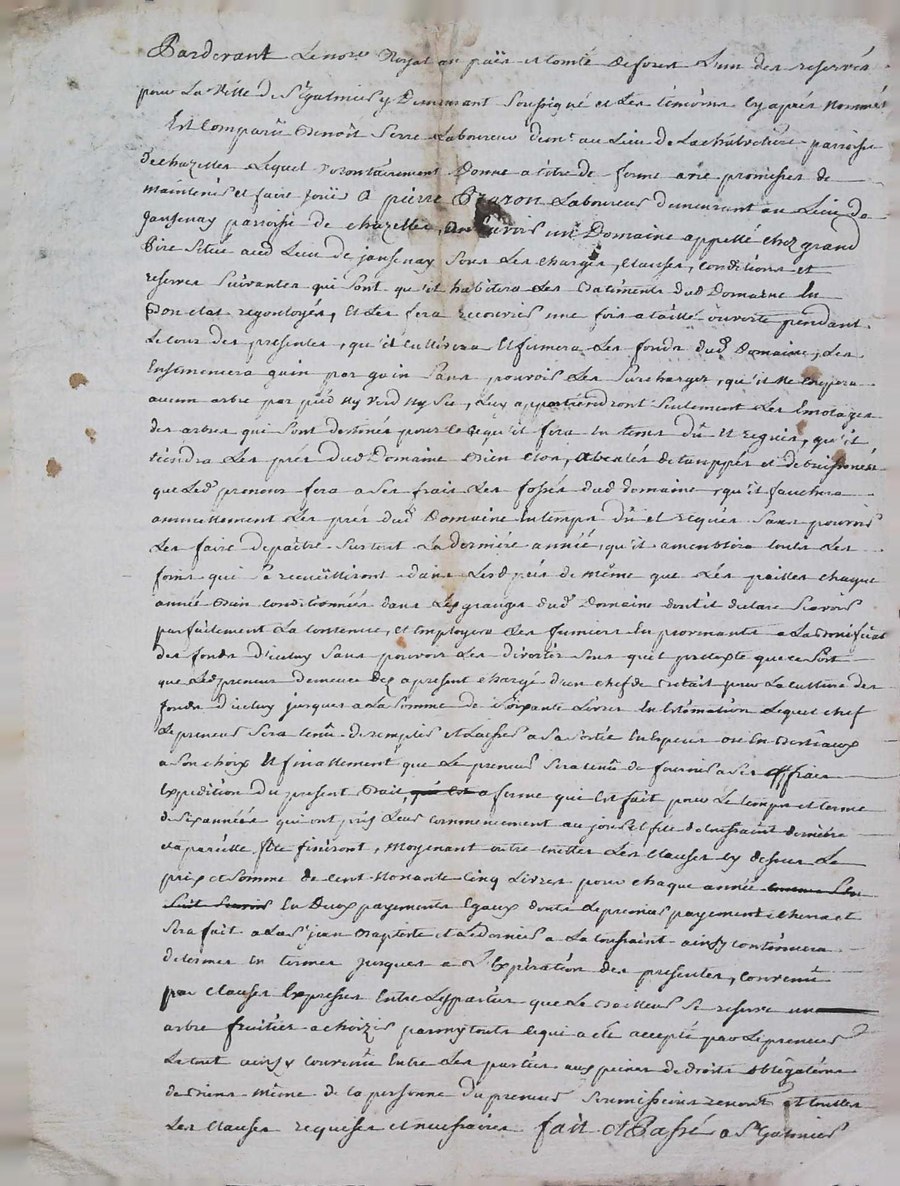 Pardevant Le nore Royal au païs et Comté de forest L'un des reservés
pour La Ville de St galmier y Demeurant Soussigné et Les témoins cy aprés Nommés
Est Comparû Benoît Serre Laboureur demt au Lieu de parroisse
de chazelles Lequel Volontairement Donne a titre de ferme avec promesses de
maintenir et faire Jouir A pierre Laboureur demeurant au Lieu de
Jansenay parroisse de chazelles, un Domaine appellé chez grand
Sittué aud Lieu de Jansenay Sous Les charges, Clauses, Conditions et
reserves Suivantes qui Sont qu'il habitera Les Batiments dud Domaine En
Bon etat regoutoyés, Et Les fera recouvrir une fois a taille ouverte pendant
Le cour des presentes, qu'il Cultivera Et fumera Les fonds dud Domaine, Les
Ensemencera gain par gain Sans pouvoir Les Surcharger, qu'il Ne Coupera
aucun arbre par pied Ny Verd Ny Sec, Luy appartiendront Seulement Les Emotages
des arbres qui Sont destinés pour ce qu'il fera En tems Dû Et requis, qu'il
tiendra Les prés dud Domaine Bien Clos, et de buissonés
que Led preneur fera a Ses frais Les fossés dud domaine, qu'il fauchera
annuellement Les prés dud Domaine En temps Dû et requis Sans pouvoir
Les faire depaître Surtout La derniére année, qu'il amenblera touts Les
foins qui Se recueïlliront dans Lesd prés de même que Les pailles chaque
année Bien Conditionnées dans Les granges dud Domaine dont il declare Scavoir
parfaitement La Contenue, et Employera Les fumiers En provenants a La Bonification
des fonds D'iceluy Sans pouvoir Les divertir Sous quel prettexte que ce Soit
que Led preneur demeure Dez apresent chargé d'un chef de Bétail pour La Culture des
fonds D'iceluy Jusques a La Somme de Soixante Livres En Estimation Lequel chef
Le preneur Sera tenû de remplir et Laisser a Sa Sortie En Espece ou En Bestiaux
a Son choix Et finallement que Le preneur Sera tenû de fournir a Ses frais
Expedition du present Bail a ferme qui Est fait pour Le temps et terme
de Six années qui ont pris Leur Commencement au Jour et fete de toussaint derniére
et a pareille fete finiront, Moyenant outre Les Clauses cy dessus Le
prix et Somme de Cent Nonante Cinq Livres pour chaque année
En Deux payements Egaux dont Le premier payement echerra et
Sera fait a La St Jean Baptiste et Le dernier a La toussaint ainsy Continuera
de termes En termes Jusques a L'Expiration des presentes, Convenû
par Clauses Expresses Entre Les parties que Le Bailleur Se reserve un
arbre fruitier a choizir parmy touts ce qui a eté accepté par Le preneur
Le tout ainsy Convenû Entre Les parties aux peines de droits obligations
de Biens même de la personne du preneur Soumissions renont et touttes
Les Clauses requises et necessaires fait Et Passé a St Galmier